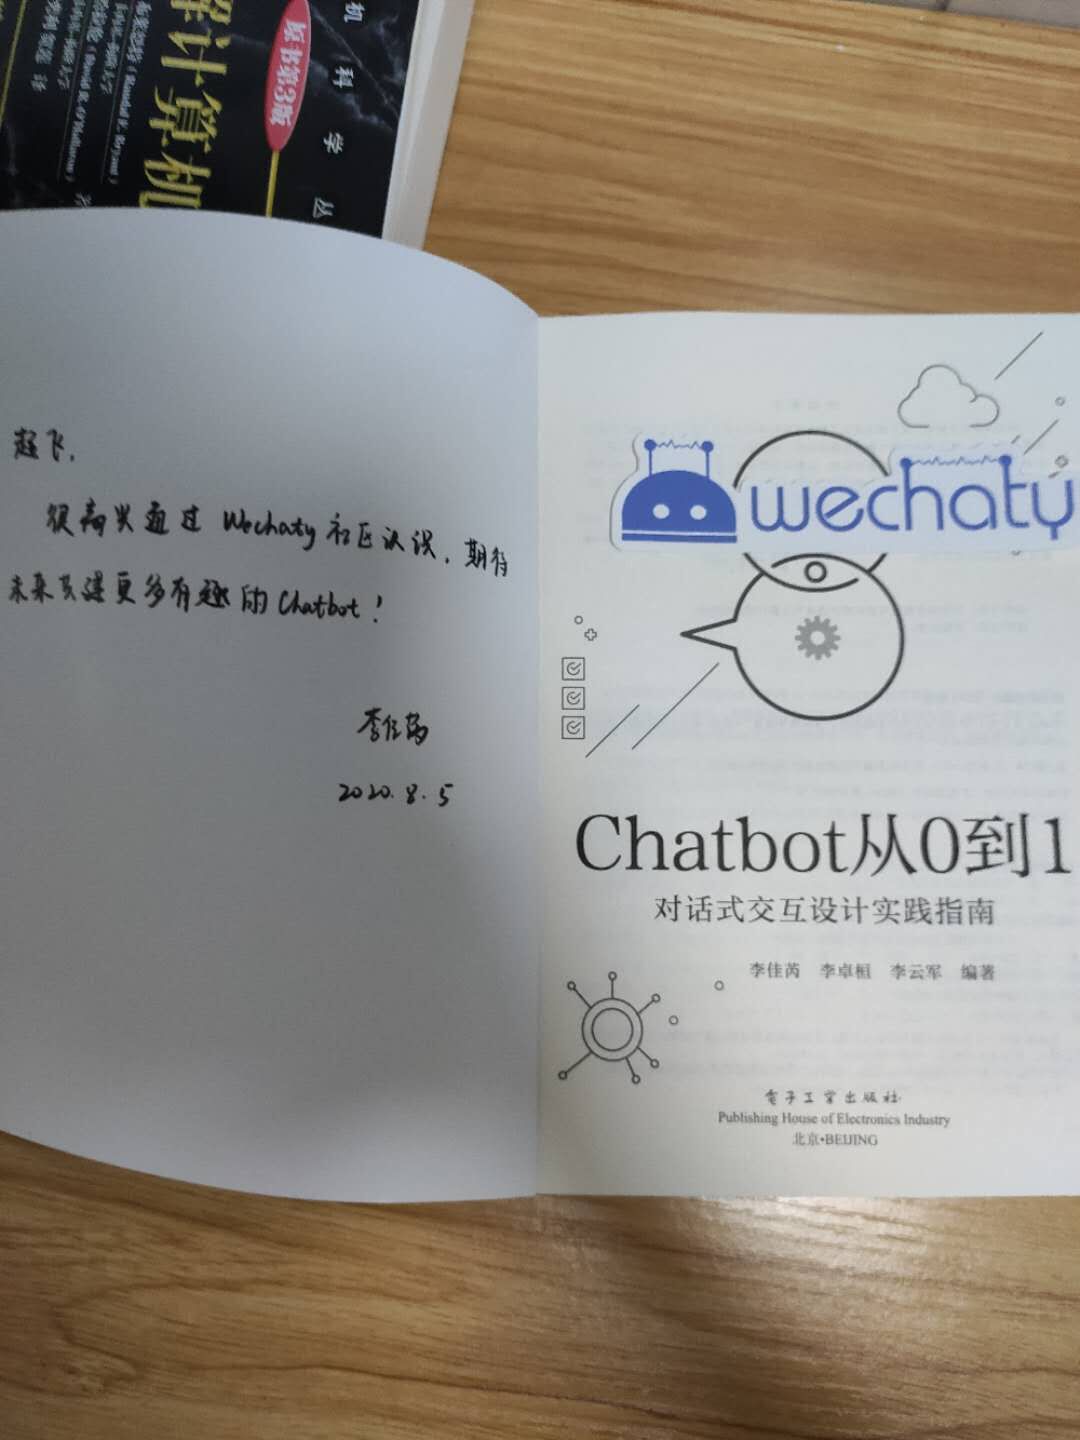 机科学丛
原书第3版
解计算机
(Randal E. Bryant)
(David R. O'Hallaron)
超飞,
很高兴通过 Wechaty 社区认识,期待
未来共建更多有趣的 Chatbot!
李佳芮
2020.8.5
wechaty
Chatbot从0到1
对话式交互设计实践指南
李佳芮 李卓桓 李云军 编著
电子工业出版社
Publishing House of Electronics Industry
北京•BEIJING